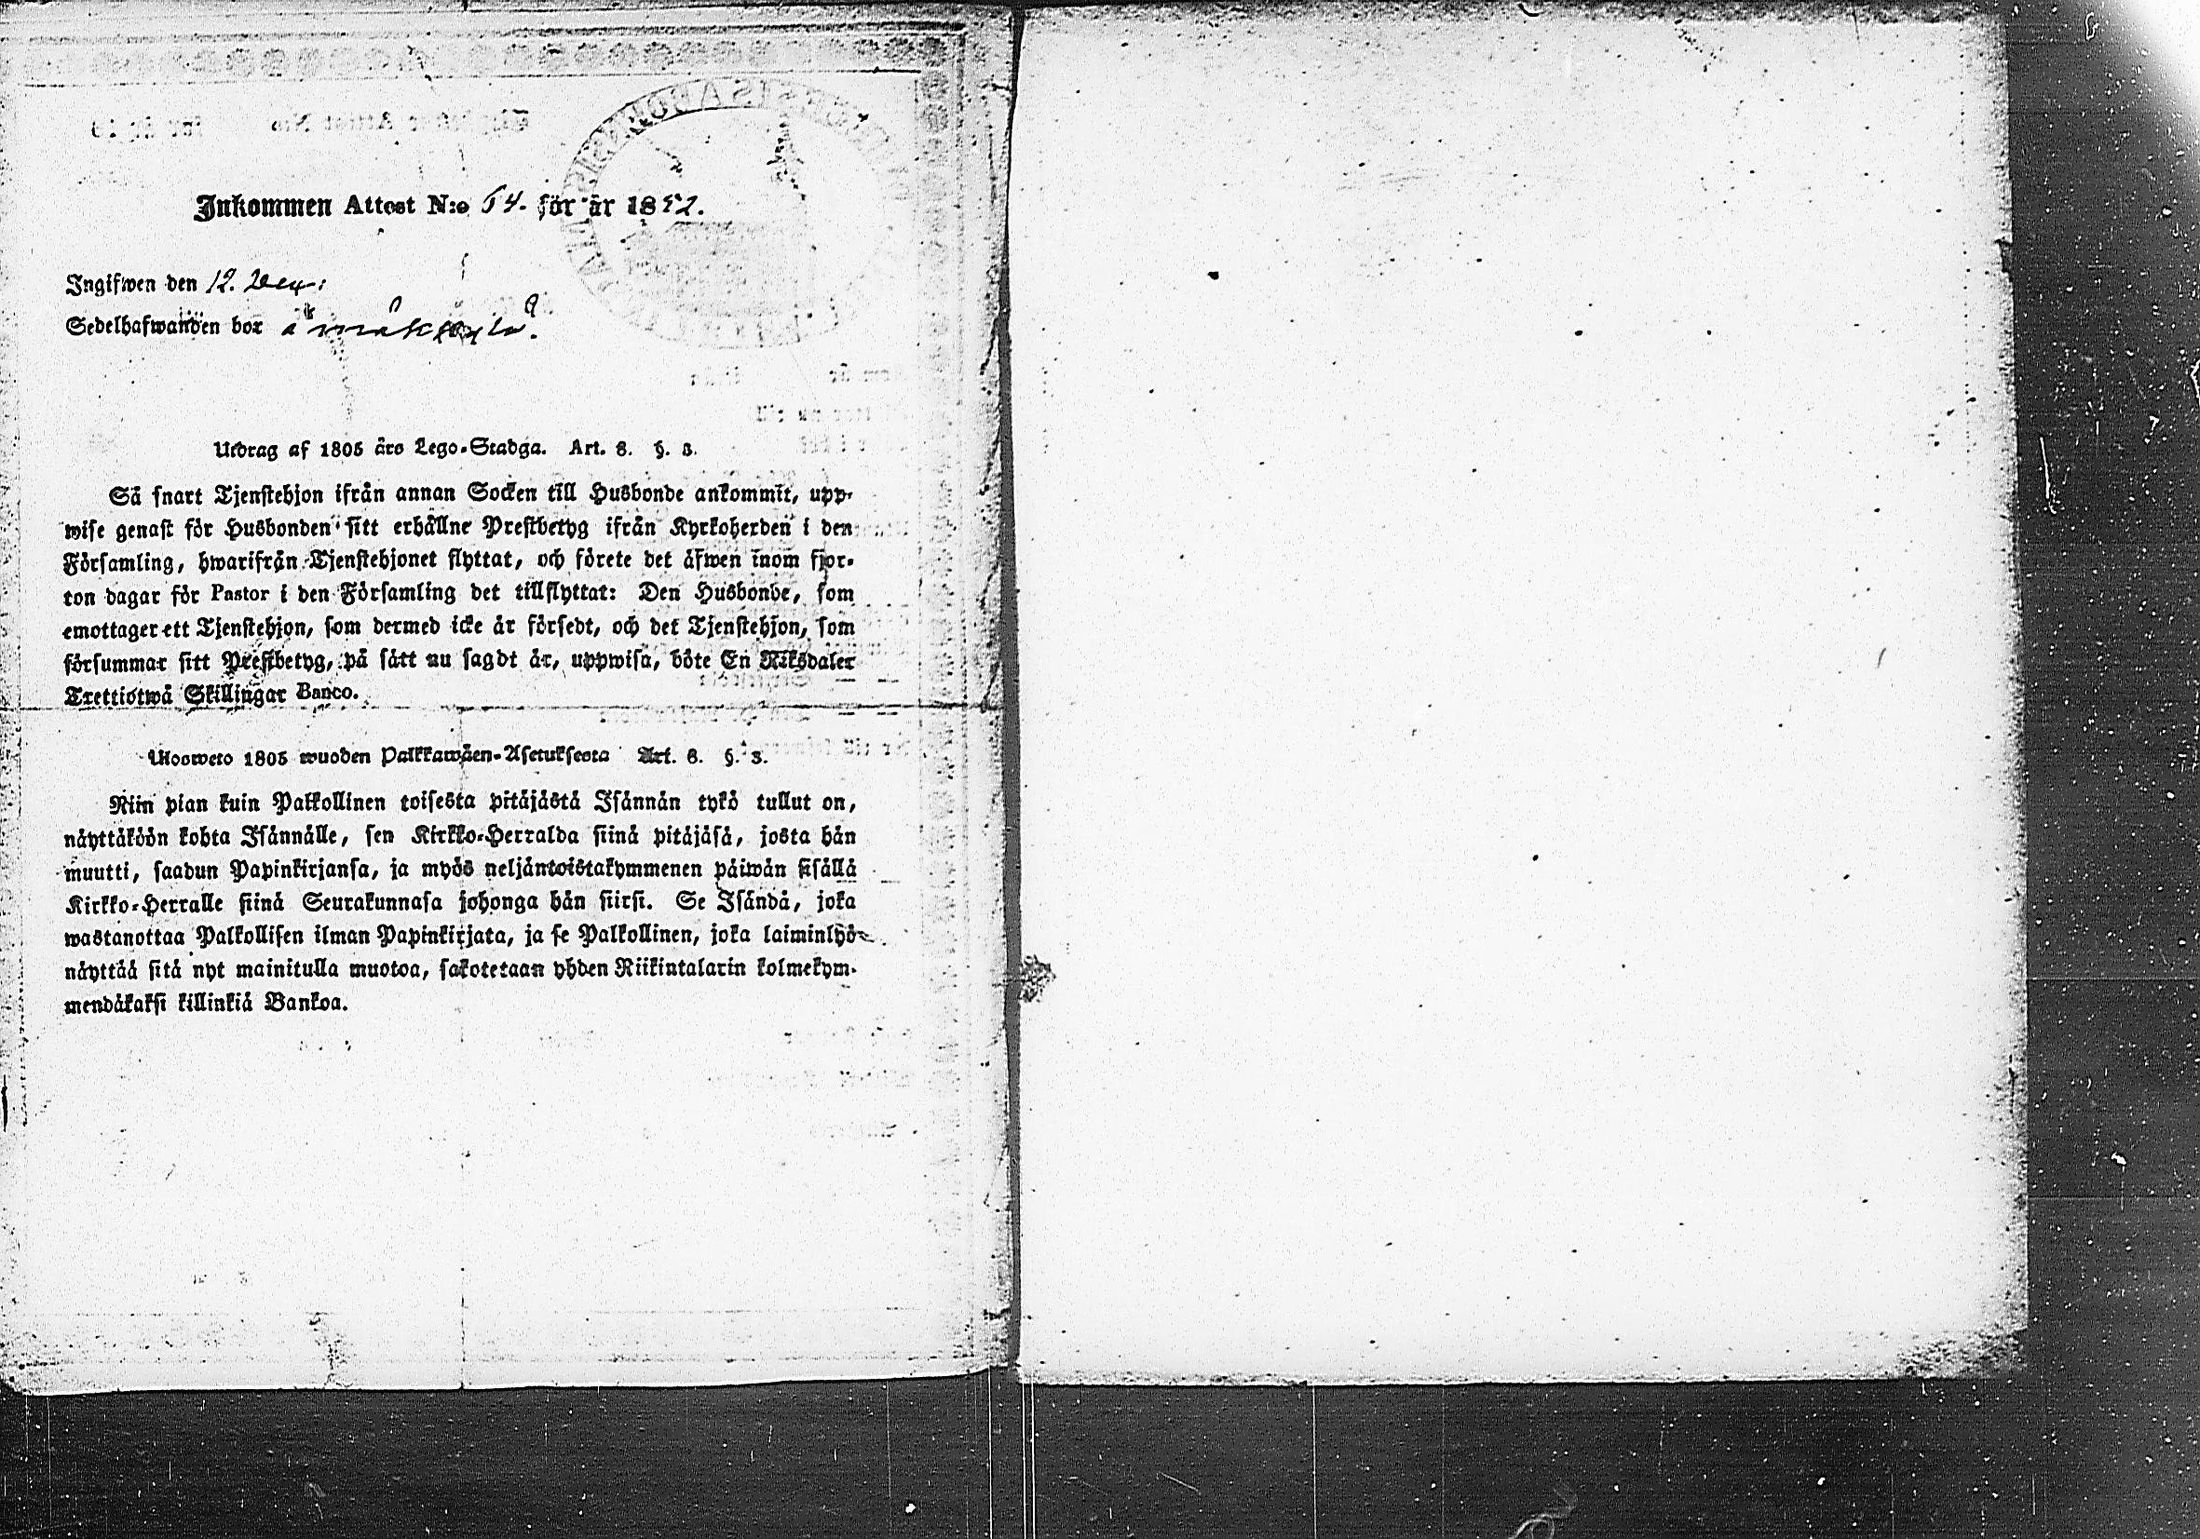 Inkommen Attest N:o 54. för år 1852.
Ingifwen den 12. Dec:
Sedelhafwanden bor å
Utdrag af 1805 års Lego-Stadga. Art. 8. §. 3.
Så snart Tjenstehjon ifrån annan Socken till Husbonde ankommit, upp-
wise genast för Husbonden sitt erhållne Prestbetyg ifrån Kyrkoherden i den
Församling, hwarifrån Tjenstehjonet flyttat, och förete det äfwen inom fjor-
ton dagar för Pastor i den Församling det tillflyttat: Den Husbonde, som
emottager ett Tjenstehjon, som dermed icke är försedt, och det Tjenstehjon, som
försummar sitt Prestbetyg, på sätt nu sagdt är, uppwisa, böte En Riksdaler
Trettiotwå Skillingar Banco.
Ulosweto 1805 wuoden Palkkawäen-Asetuksesta Art. 8. §. 3.
Niin pian kuin Palkollinen toisesta pitäjästä Isännän tykö tullut on,
näyttäköön kohta Isännälle, sen Kirkko-Herralda siinä pitäjäsä, josta hän
muutti, saadun Papinkirjansa, ja myös neljäntoistakymmenen päiwän sisällä
Kirkko-Herralle siinä Seurakunnasa johonga hän siirsi. Se Isändä, joka
wastanottaa Palkollisen ilman Papinkirjata, ja se Palkollinen, joka laiminlyö
näyttää sitä nyt mainitulla muotoa, sakotetaan yhden Riikintalarin kolmekym-
mendäkaksi killinkiä Bankoa.